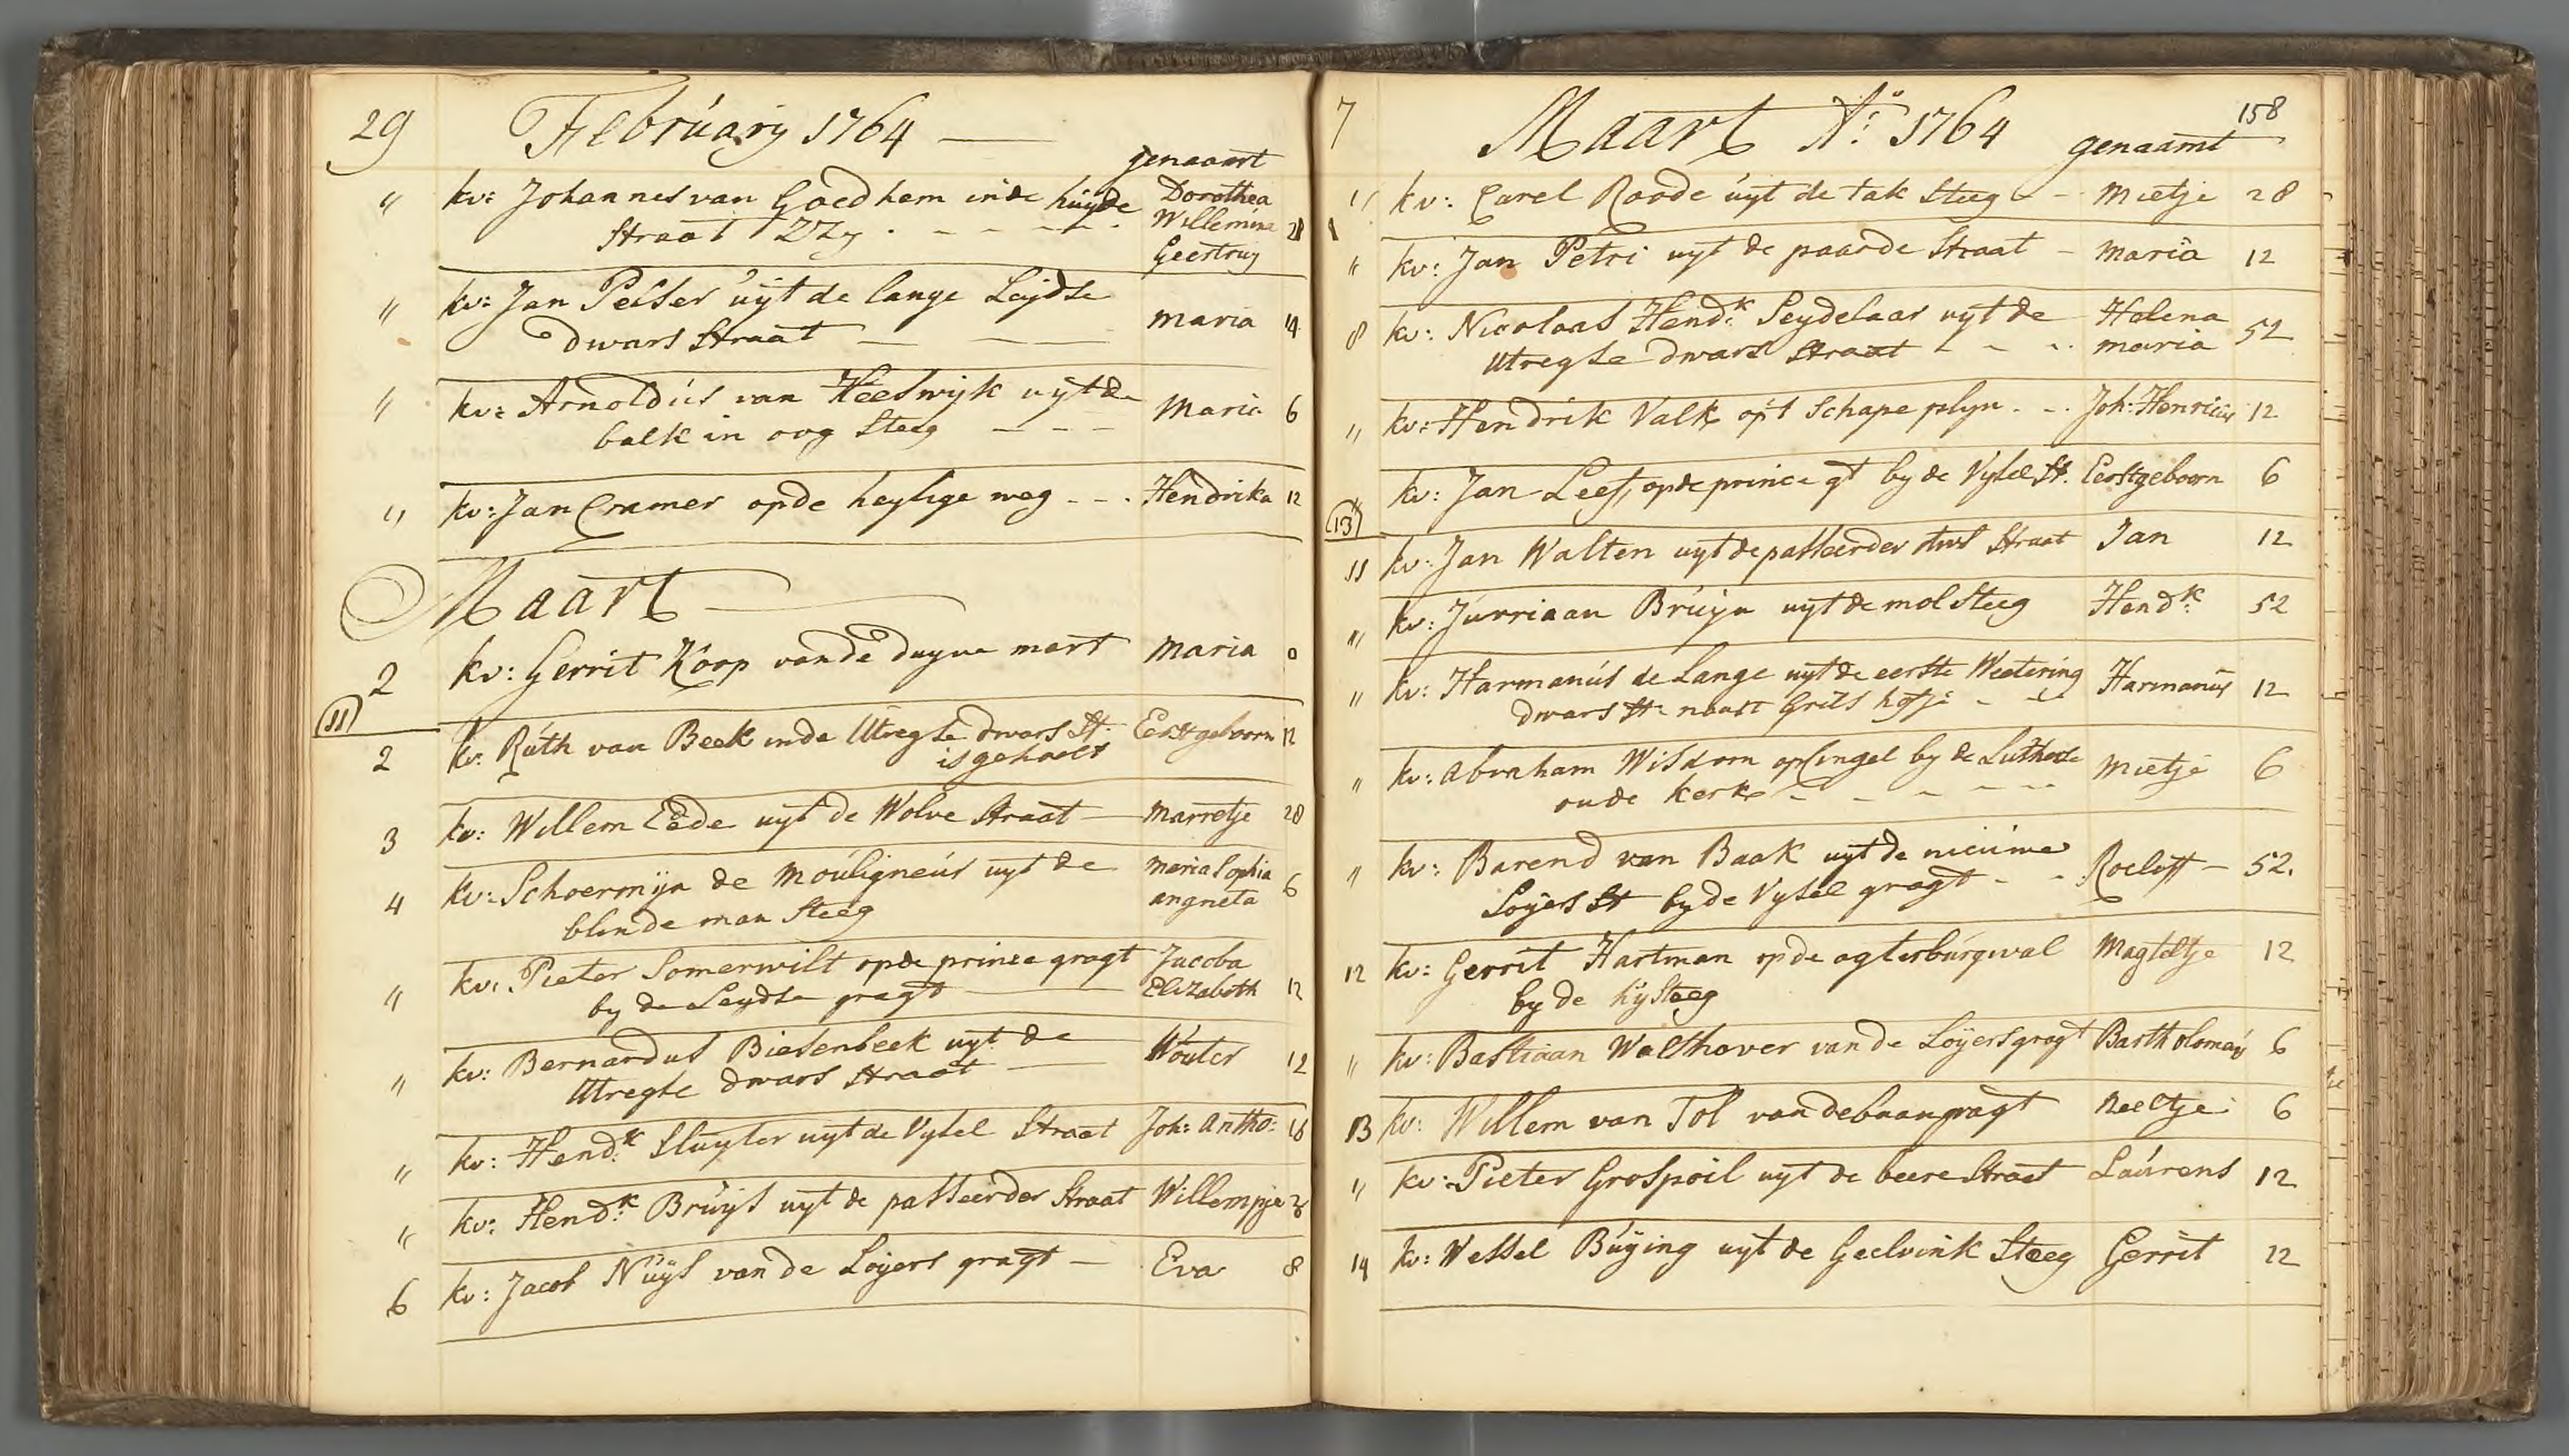 29 February 1764
genaamt
" kv: Johannes van Goedhem inde huyde Dorothea
Straat ZZy Willemina 28
Geertruy
" kv: Jan Peltser uyt de lange Leydse
dwars Straat maria 14
" kv: Arnoldus van Heeswyk uyt de
balk in oog Steeg Maria 6
" kv: Jan Cramer opde heylige weg Hendrika 12
Maart
2 kv: Gerrit Koop van de Duyve mart Maria 0
11
2 kv: Ruth van Beek inde Utregse dwars St. Eerstgeboorn 12
is gehaelt
3 kv: Willem Eede uyt de Wolve Straat Marretje 28
4 kv: Schoermyn de Mouligneus uyt de maria Sophia 6
blinde man Steeg angneta
" kv: Pieter Somerwilt opde prince gragt Jacoba
by de Leydse gragt Elizabeth 12
" kv: Bernardus Biesenbeek uyt de Wouter 12
Utregse dwars Straat
" kv: Hendk Sluyter uyt de Vysel Straat Joh: Antho:
" kv: Hendk Bruys uyt de passeerder Straat Willempje
6 kv: Jacob Nuys van de Loyers gragt Eva 8
158
7 Maart Ao: 1764 genaamt
" kv: Carel Roode uyt de tak Steeg Mietje 28
" kv: Jan Petri uyt de paarde Straat Maria 12
8 kv: Nicolaas Hendk Seydelaar uyt de Helena
Utregse dwars Straat maria 52
" kv: Hendrik Valk op 't Schape plyn Joh: Henricus 12
" kv: Jan Leef, opde prince gt by de Vysel St. Eerstgeboorn 6
13
11 kv: Jan Walten uyt de passeerder dws Straat Jan 12
" kv: Jurriaan Bruyn uyt de mol Steeg Hendk 52
" kv: Harmanus de Lange uyt de eerste Weetering Harmanus 12
dwars St: naast Grils hofje
" kv: Abraham Wisdom op Cingel by de Lutherse Mietje 6
oude kerk
" kv: Barend van Baak uyt de nieuwe Roeloff 52.
Loyers St by de Vysel gragt
12 kv: Gerrit Hartman opde agterburgwal Magteltje 12
by de hysteeg
" kv: Bastiaan Walthover van de Loyersgragt Bartholomeus 6
13 kv: Willem van Tol van de baangragt Neeltje 6
" kv: Pieter Grospoil uyt de beere Straat Laurens 12
14 kv: Wessel Buying uyt de Geelvink Steeg Gerrit 12